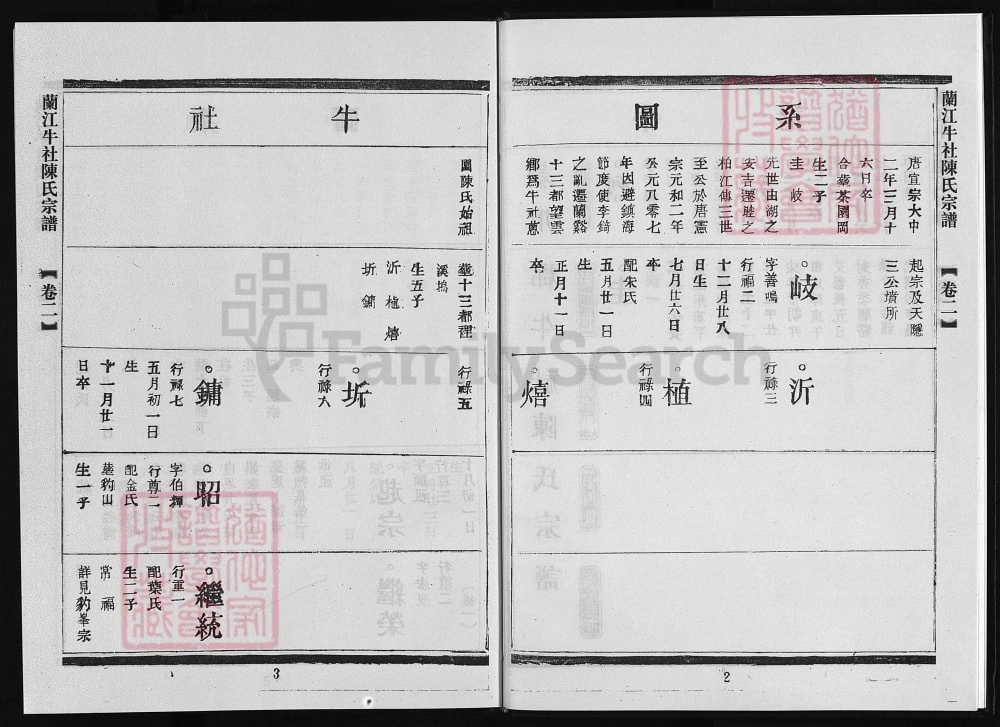 蘭江牛社陳氏宗譜
【卷二】
系
圖
唐宣宗大中
二年三月十
六日卒
合塟茶園岡
生二子
圭 岐
先世由湖之
安吉遷睦之
柏江傳三世
至公於唐憲
宗元和二年
公元八零七
年因避鎮海
節度使李錡
之亂遷蘭谿
十三都望雲
鄉爲牛社蔥
起宗及天隱
三公墳所
岐
字善鳴
行福二
十二月廿八
日生
七月廿六日
卒
配朱氏
五月廿一日
生
正月十一日
卒
沂
行祿三
植
行祿四
熺
2
牛
社
園陳氏始祖
塟十三都裡
溪塢
生五子
沂 植 熺
圻 鏞
行祿五
圻
行祿六
鏞
行祿七
五月初一日
生
十一月廿一
日卒
昭
字伯輝
行尊二
配金氏
塟豹山
生一子
繼統
行重一
配葉氏
生二子
常 福
詳見豹峯宗
3
蘭江牛社陳氏宗譜
【卷二】
FamilySearch